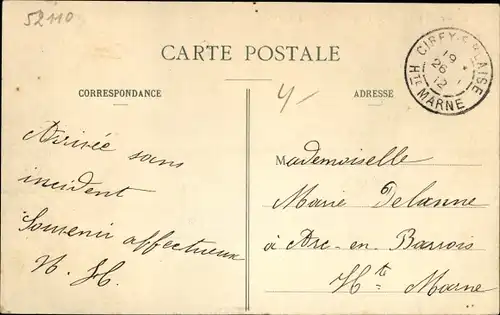 52110
CARTE POSTALE
CIREY-S-BLAISE
19
26 - 1
12
HTE MARNE
CORRESPONDANCE
4/-
ADRESSE
Arrivée sans
incident
Souvenir affectueux
Mademoiselle
Marie Delanne
à Arc-en-Barrois
Hte Marne